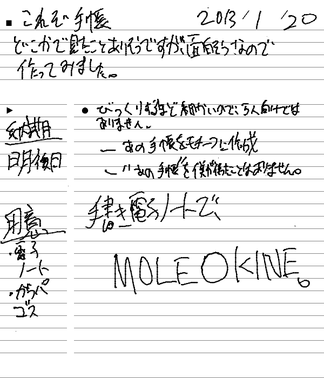 ■ これぞ手帳 2013/1/20
どこかで見たことありそうですが、面白そうなので
作ってみました。
▶
納期日
明後日
用意
・電子
ノート
・からパ
ゴス
● びっくりするほど細かいので、万人向けでは
ありません。
― あの手帳をモチーフに作成
― ''あの手帳''を使ったことはありません。
手書き電子ノートで、
MOLEOKINE。